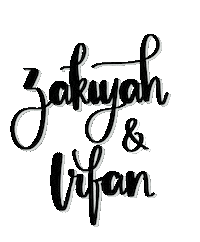 Zakiyah
&
Irfan